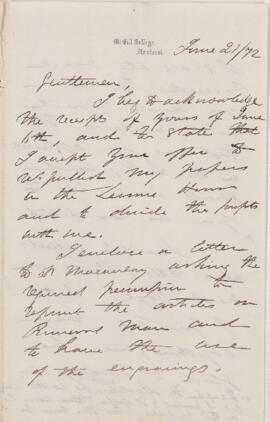 McGill College,
Montreal.
June 21/72
Gentlemen,
I beg to acknowledge
the receipt of yours of June
6th, and to state that
I accept your offer to
republish my papers
in the Leisure Hour
and to divide the profits
with me.
I enclose a letter
to Macaveny asking the
required permission to
reprint the articles on
Primeval Man and
to have the use
of the engravings.